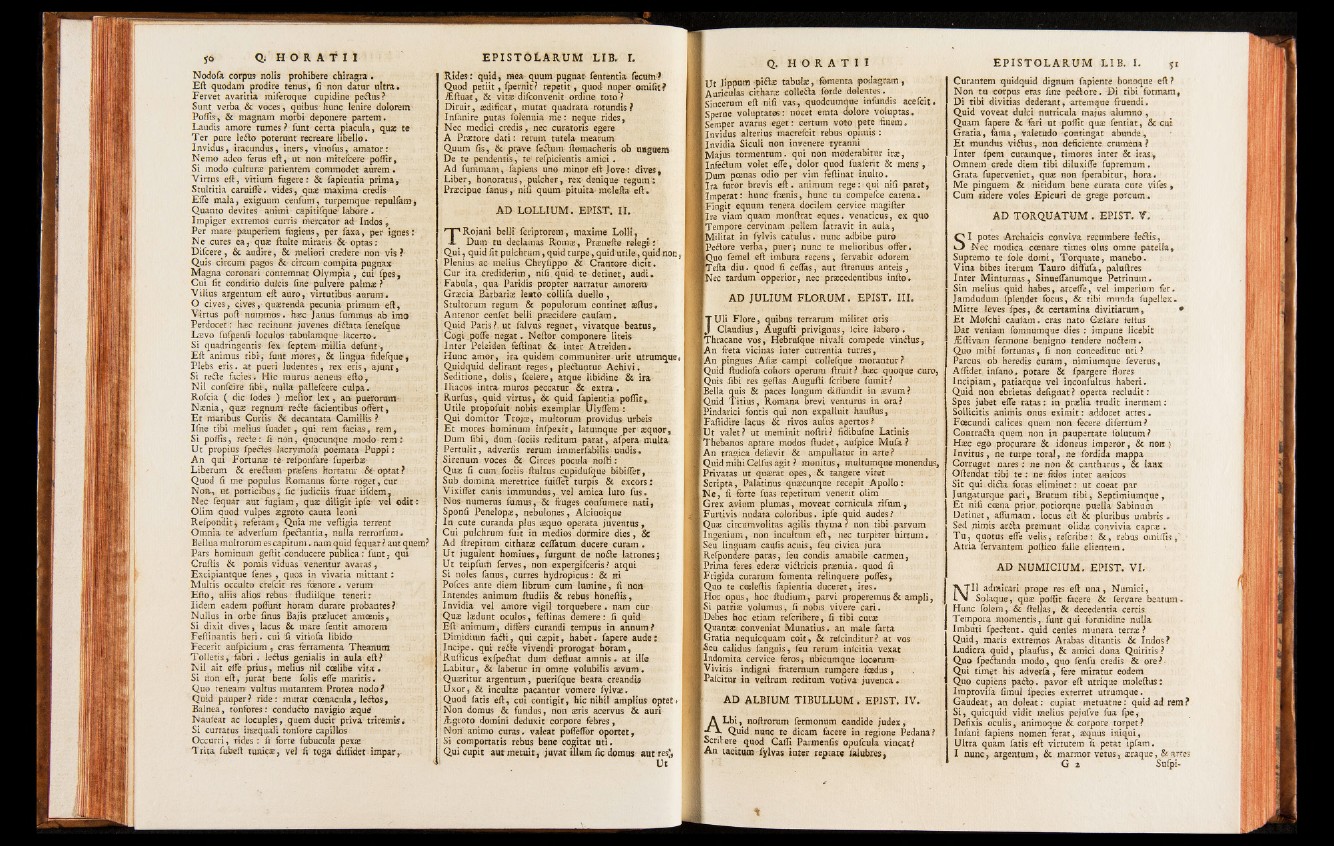 50 Q. HORATII
Nodosa corpus nolis prohibere chiragra.
Est quodam prodire tenus, si non datur ultra.
Fervet avaritia miseroque cupidine pectus?
Sunt verba & voces, quibus hunc lenire dolorem
Possis, & magnam morbi deponere partem.
Laudis amore tumes? sunt certa piacula, quæ te
Ter pure lecto poterunt recreare libello.
Invidus, iracundus, iners, vinosus, amator:
Nemo adeo ferus est, ut non mitescere possit,
Si modo culturæ patientem commodet aurem.
Virtus est, vitium fugere: & sapientia prima,
Stultitia caruisse. vides, quæ maxima credis
Esse mala, exiguum censum, turpemque repulsam,
Quanto devites animi capitisque labore.
Impiger extremos curris mercator ad Indos,
Per mare pauperiem fugiens, per saxa, per ignes:
Ne cures ea, quæ stulte miraris & optas:
Discere, & audire, & meliori credere non vis?
Quis circum pagos & circum compita pugnax
Magna coronari contemnat Olympia, cui spes,
Cui sit conditio dulcis sine pulvere palmæ?
Vilius argentum est auro, virtutibus aurum.
O cives, cives, quærenda pecunia primum est,
Virtus post nummos. hæc Janus summus ab imo
Perdocet: hæc recinunt juvenes dictata senesque
Lævo suspensi loculos tabulamque lacerto.
Si quadringentis sex septem millia desunt,
Est animus tibi, sunt mores, & lingua fidesque,
Plebs eris. at pueri ludentes, rex eris, ajunt,
Si recte facies. Hic murus aeneus esto,
Nil conscire sibi, nulla pallescere culpa.
Roscia ( dic sodes ) melior lex, an puerorum
Nænia, quæ regnum recte facientibus offert,
Et maribus Curiis & decantata Camillis?
Isne tibi melius suadet, qui rem facias, rem,
Si possis, recte: si non, quocunque modo rem:
Ut propius spectes lacrymosa poemata Puppi:
An qui Fortunæ te responsare superbæ
Liberum & erectum præsens hortatur & optat?
Quod si me populus Romanus forte roget, cur
Non, ut porticibus, sic judiciis fruar iisdem,
Nec sequar aut fugiam, quæ diligit ipse vel odit:
Olim quod vulpes ægroto cauta leoni
Respondit, referam, Quia me vestigia terrent
Omnia te adversum spectantia, nulla retrorsum.
Bellua multorum es capitum. nam quid sequar? aut quem?
Pars hominum gestit conducere publica: sunt, qui
Crustis & pomis viduas venentur avaras,
Excipiantque senes, quos in vivaria mittant:
Multis occulto crescit res fœnore. verum
Esto, aliis alios rebus studiisque teneri:
Iidem eadem possunt horam durare probantes?
Nullus in orbe sinus Bajis prælucet amœnis,
Si dixit dives, lacus & mare sentit amorem
Festinantis heri. cui si vitiosa libido
Fecerit auspicium, cras ferramenta Theanum
Tolletis, fabri. lectus genialis in aula est?
Nil ait esse prius, melius nil cœlibe vita.
Si non est, jurat bene solis esse maritis.
Quo teneam vultus mutantem Protea nodo?
Quid pauper? ride: mutat cœnacula, lectos,
Balnea, tonsores: conducto navigio æque
Nauseat ac locuples, quem ducit priva triremis.
Si curratus inæquali tonsore capillos
Occurri, rides: si forte subucula pexæ
Trita subest tunicæ, vel si toga dissidet impar,
EPISTOLARUM LIB. I.
Rides: quid, mea quum pugnat sententia secum?
Quod petiit, spernit? repetit, quod nuper omisit?
Æstuat, & vitæ disconvenit ordine toto?
Diruit, ædificat, mutat quadrata rotundis?
Insanire putas solennia me: neque rides,
Nec medici credis, nec curatoris egere
A Prætore dati: rerum tutela mearum
Quum sis, & prave sectum stomacheris ob unguem
De te pendentis, te respicientis amici.
Ad summam, sapiens uno minor est Jove: dives,
Liber, honoratus, pulcher, rex denique regum:
Præcipue sanus, nisi quum pituita molesta est.
AD LOLLIUM. EPIST. II.
TRojani belli scriptorem, maxime Lolli,
Dum tu declamas Romæ, Præneste relegi:
Qui, quid sit pulchrum, quid turpe, quid utile, quid non,
Plenius ac melius Chrysippo & Crantore dicit.
Cur ita crediderim, nisi quid te detinet, audi.
Fabula, qua Paridis propter narratur amorem
Græcia Barbariæ lento collisa duello,
Stultorum regum & populorum continet æstus.
Antenor censet belli præcidere causam.
Quid Paris? ut salvus regnet, vivatque beatus,
Cogi posse negat. Nestor componere liteis
Inter Peleiden festinat & inter Atreiden.
Hunc amor, ira quidem communiter urit utrumque,
Quidquid delirant reges, plectuntur Achivi.
Seditione, dolis, scelere, atque libidine & ira
Iliacos intra muros peccatur & extra.
Rursus, quid virtus, & quid sapientia possit,
Utile proposuit nobis exemplar Ulyssem:
Qui domitor Trojæ, multorum providus urbeis
Et mores hominum inspexit, latumque per æquor,
Dum sibi, dum sociis reditum parat, aspera multa
Pertulit, adversis rerum immersabilis undis.
Sirenum voces & Circes pocula nosti:
Quæ si cum sociis stultus cupidusque bibisset,
Sub domina meretrice fuisset turpis & excors:
Vixisset canis immundus, vel amica luto sus.
Nos numerus sumus, & fruges consumere nati,
Sponsi Penelopæ, nebulones, Alcinoique
In cute curanda plus æquo operata juventus,
Cui pulchrum fuit in medios dormire dies, &
Ad strepitum citharæ cessatum ducere curam.
Ut jugulent homines, surgunt de nocte latrones;
Ut teipsum serves, non expergisceris? atqui
Si noles sanus, curres hydropicus: & ni
Posces ante diem librum cum lumine, si non
Intendes animum studiis & rebus honestis,
Invidia vel amore vigil torquebere. nam cur
Quæ lædunt oculos, festinas demere: si quid
Est animum, differs curandi tempus in annum?
Dimidium facti, qui cœpit, habet. sapere aude:
Incipe. qui recte vivendi prorogat horam,
Rusticus exspectat dum defluat amnis. at ille
Labitur, & labetur in omne volubilis ævum.
Quæritur argentum, puerisque beata creandis
Uxor, & incultæ pacantur vomere sylvæ.
Quod satis est, cui contigit, hic nihil amplius optet.
Non domus & fundus, non æris acervus & auri
Ægroto domini deduxit corpore febres,
Non animo curas. valeat possessor oportet,
Si comportatis rebus bene cogitat uti.
Qui cupit aut metuit, juvat illum sic domus aut res,
Ut
Q. HORATII
Ut lippum pictæ tabulæ, fomenta podagram,
Auriculas citharæ collecta sorde dolentes.
Sincerum est nisi vas, quodcumque infundis acescit.
Sperne voluptates: nocet emta dolore voluptas.
Semper avarus eget: certum voto pete finem.
Invidus alterius macrescit rebus opimis:
Invidia Siculi non invenere tyranni
Majus tormentum. qui non moderabitur iræ,
Infectum volet esse, dolor quod suaserit & mens,
Dum pœnas odio per vim festinat inulto.
Ira furor brevis est. animum rege: qui nisi paret,
Imperat: hunc frænis, hunc tu compesce catena.
Fingit equum tenera docilem cervice magister
Ire viam quam monstrat eques. venaticus, ex quo
Tempore cervinam pellem latravit in aula,
Militat in sylvis catulus. nunc adbibe puro
Pectore verba, puer; nunc te melioribus offer.
Quo semel est imbuta recens, servabit odorem
Testa diu. quod si cessas, aut strenuus anteis,
Nec tardum opperior, nec præcedentibus insto.
AD JULIUM FLORUM. EPIST. III.
JUli Flore, quibus terrarum militet oris
Claudius, Augusti privignus, scire laboro.
Thracane vos, Hebrusque nivali compede vinctus,
An freta vicinas inter currentia turres,
An pingues Asiæ campi collesque morantur?
Quid studiosa cohors operum struit? hæc quoque curo,
Quis sibi res gestas Augusti scribere sumit?
Bella quis & paces longum diffundit in ævum?
Quid Titius, Romana brevi venturus in ora?
Pindarici fontis qui non expalluit haustus,
Fastidire lacus & rivos ausus apertos?
Ut valet? ut meminit nostri? fidibusne Latinis
Thebanos aptare modos studet, auspice Musa?
An tragica desævit & ampullatur in arte?
Quid mihi Celsus agit? monitus, multumque monendus,
Privatas ut quærat opes, & tangere vitet
Scripta, Palatinus quæcunque recepit Apollo:
Ne, si forte suas repetitum venerit olim
Grex avium plumas, moveat cornicula risum,
Furtivis nudata coloribus. ipse quid audes?
Quæ circumvolitas agilis thyma? non tibi parvum
Ingenium, non incultum est, nec turpiter hirtum.
Seu linguam causis acuis, seu civica jura
Respondere paras, seu condis amabile carmen,
Prima feres ederæ victricis præmia. quod si
Frigida curarum fomenta relinquere posses,
Quo te cœlestis sapientia duceret, ires.
Hoc opus, hoc studium, parvi properemus & ampli,
Si patriæ volumus, si nobis vivere cari.
Debes hoc etiam rescribere, si tibi curæ
Quantæ conveniat Munatius. an male sarta
Gratia nequicquam coit, & rescinditur? at vos
Seu calidus sanguis, seu rerum inscitia vexat
Indomita cervice feros, ubicumque locorum
Vivitis indigni fraternum rumpere fœdus,
Palcitur in vestrum reditum votiva juvenca.
AD ALBIUM TIBULLUM. EPIST. IV.
ALbi, nostrorum sermonum candide judex,
Quid nunc te dicam facere in regione Pedana?
Scribere quod Cassi Parmensis opuscula vincat?
An tacitum sylvas inter reptare salubres,
EPISTOLARUM LIB. I. 51
Curantem quidquid dignum sapiente bonoque est?
Non tu corpus eras sine pectore. Di tibi formam,
Di tibi divitias dederant, artemque fruendi.
Quid voveat dulci nutricula majus alumno,
Quam sapere & fari ut possit quæ sentiat, & cui
Gratia, fama, valetudo contingat abunde,
Et mundus victus, non deficiente crumena?
Inter spem curamque, timores inter & iras,
Omnem crede diem tibi diluxisse supremum.
Grata superveniet, quæ non sperabitur, hora.
Me pinguem & nitidum bene curata cute vises,
Cum ridere voles Epicuri de grege porcum.
AD TORQUATUM. EPIST. V.
SI potes Archaicis conviva recumbere lectis,
Nec modica cœnare times olus omne patella,
Supremo te sole domi, Torquate, manebo.
Vina bibes iterum Tauro diffusa, palustres
Inter Minturnas, Sinuessanumque Petrinum.
Sin melius quid habes, arcesse, vel imperium fer.
Jamdudum splendet focus, & tibi munda supellex.
Mitte leves spes, & certamina divitiarum,
Et Moschi causam. cras nato Cæsare festus
Dat veniam somnumque dies: impune licebit
Æstivam sermone benigno tendere noctem.
Quo mihi fortunas, si non conceditur uti?
Parcus ob heredis curam, nimiumque severus,
Assidet insano. potare & spargere flores
Incipiam, patiarque vel inconsultus haberi.
Quid non ebrietas designat? operta recludit:
Spes jubet esse ratas: in prælia trudit inermem:
Sollicitis animis onus eximit: addocet artes.
Fœcundi calices quem non fecere disertum?
Contracta quem non in paupertate solutum?
Hæc ego procurare & idoneus imperor, & non
Invitus, ne turpe toral, ne sordida mappa
Corruget nares: ne non & cantharus, & lanx
Ostendat tibi te: ne fidos inter amicos
Sit qui dicta foras eliminet: ut coeat par
Jungaturque pari, Brutum tibi, Septimiumque,
Et nisi cœna prior potiorque puella Sabinum
Detinet, assumam. locus est & pluribus umbris.
Sed nimis arcta premunt olidæ convivia capræ.
Tu, quotus esse velis, rescribe: &, rebus omissis,
Atria servantem postico falle clientem.
AD NUMICIUM. EPIST. VI.
NIl admirari prope res est una, Numici,
Solaque, quæ possit facere & servare beatum.
Hunc solem, & stellas, & decedentia certis
Tempora momentis, sunt qui formidine nulla
Imbuti spectent. quid censes munera terræ?
Quid, maris extremos Arabas ditantis & Indos?
Ludicra quid, plausus, & amici dona Quiritis?
Quo spectanda modo, quo sensu credis & ore?
Qui timet his adversa, fere miratur eodem
Quo cupiens pacto. pavor est utrique molestus:
Improvisa simul species exterret utrumque.
Gaudeat, an doleat: cupiat metuatne: quid ad rem?
Si, quicquid vidit melius pejusve sua spe,
Defixis oculis, animoque & corpore torpet?
Insani sapiens nomen ferat, æquus iniqui,
Ultra quam satis est virtutem si petat ipsam.
I nunc, argentum, & marmor vetus, æraque, & artes
G 2 Suspi-